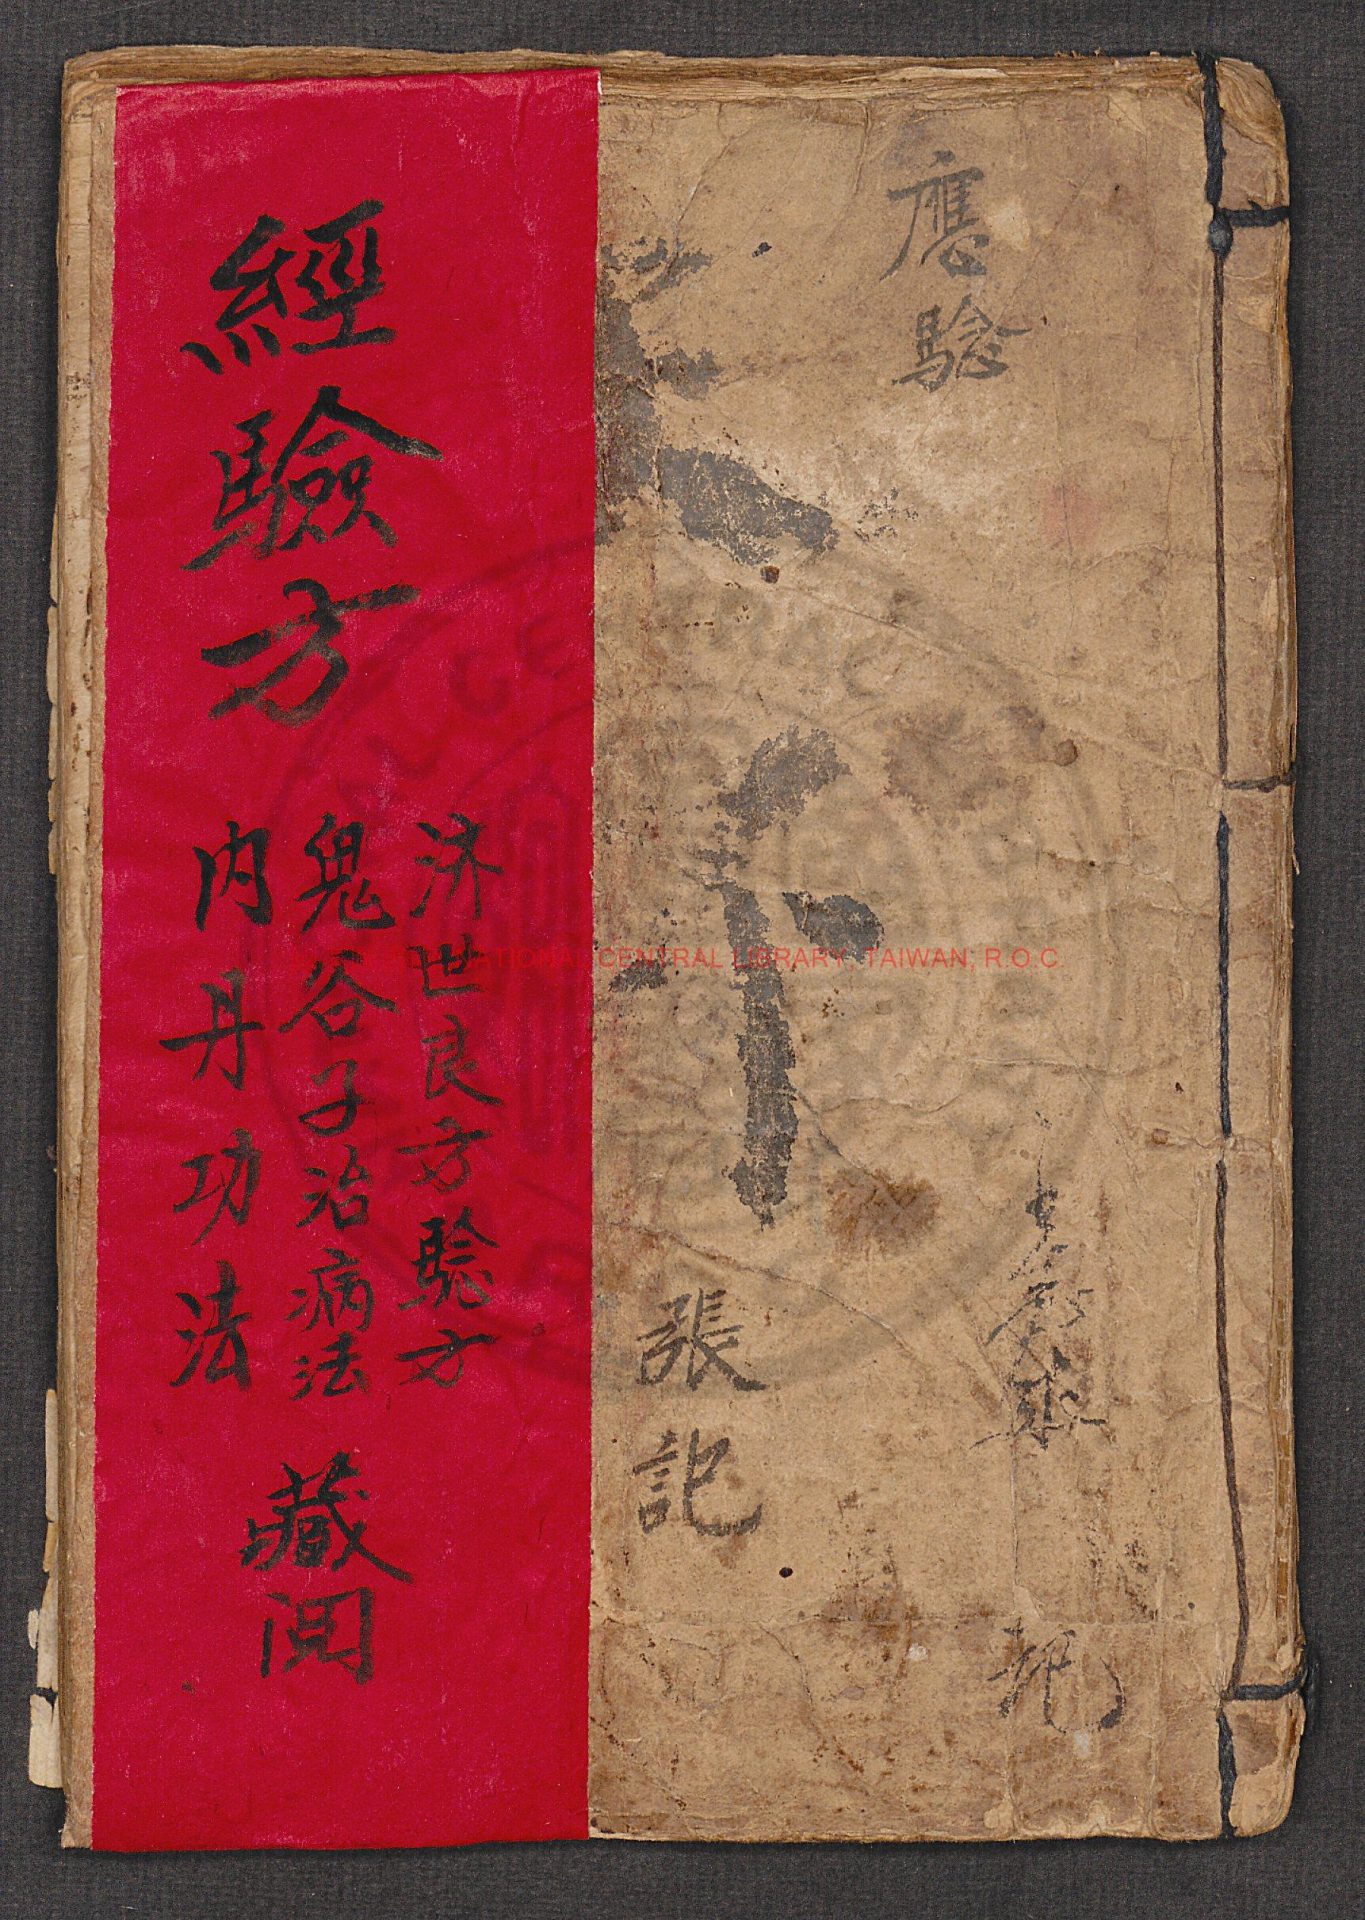 應騐
張記
經驗方
济世良方騐方
鬼谷子治病法
内丹功法
藏
NATIONAL CENTRAL LIBRARY, TAIWAN, R.O.C.